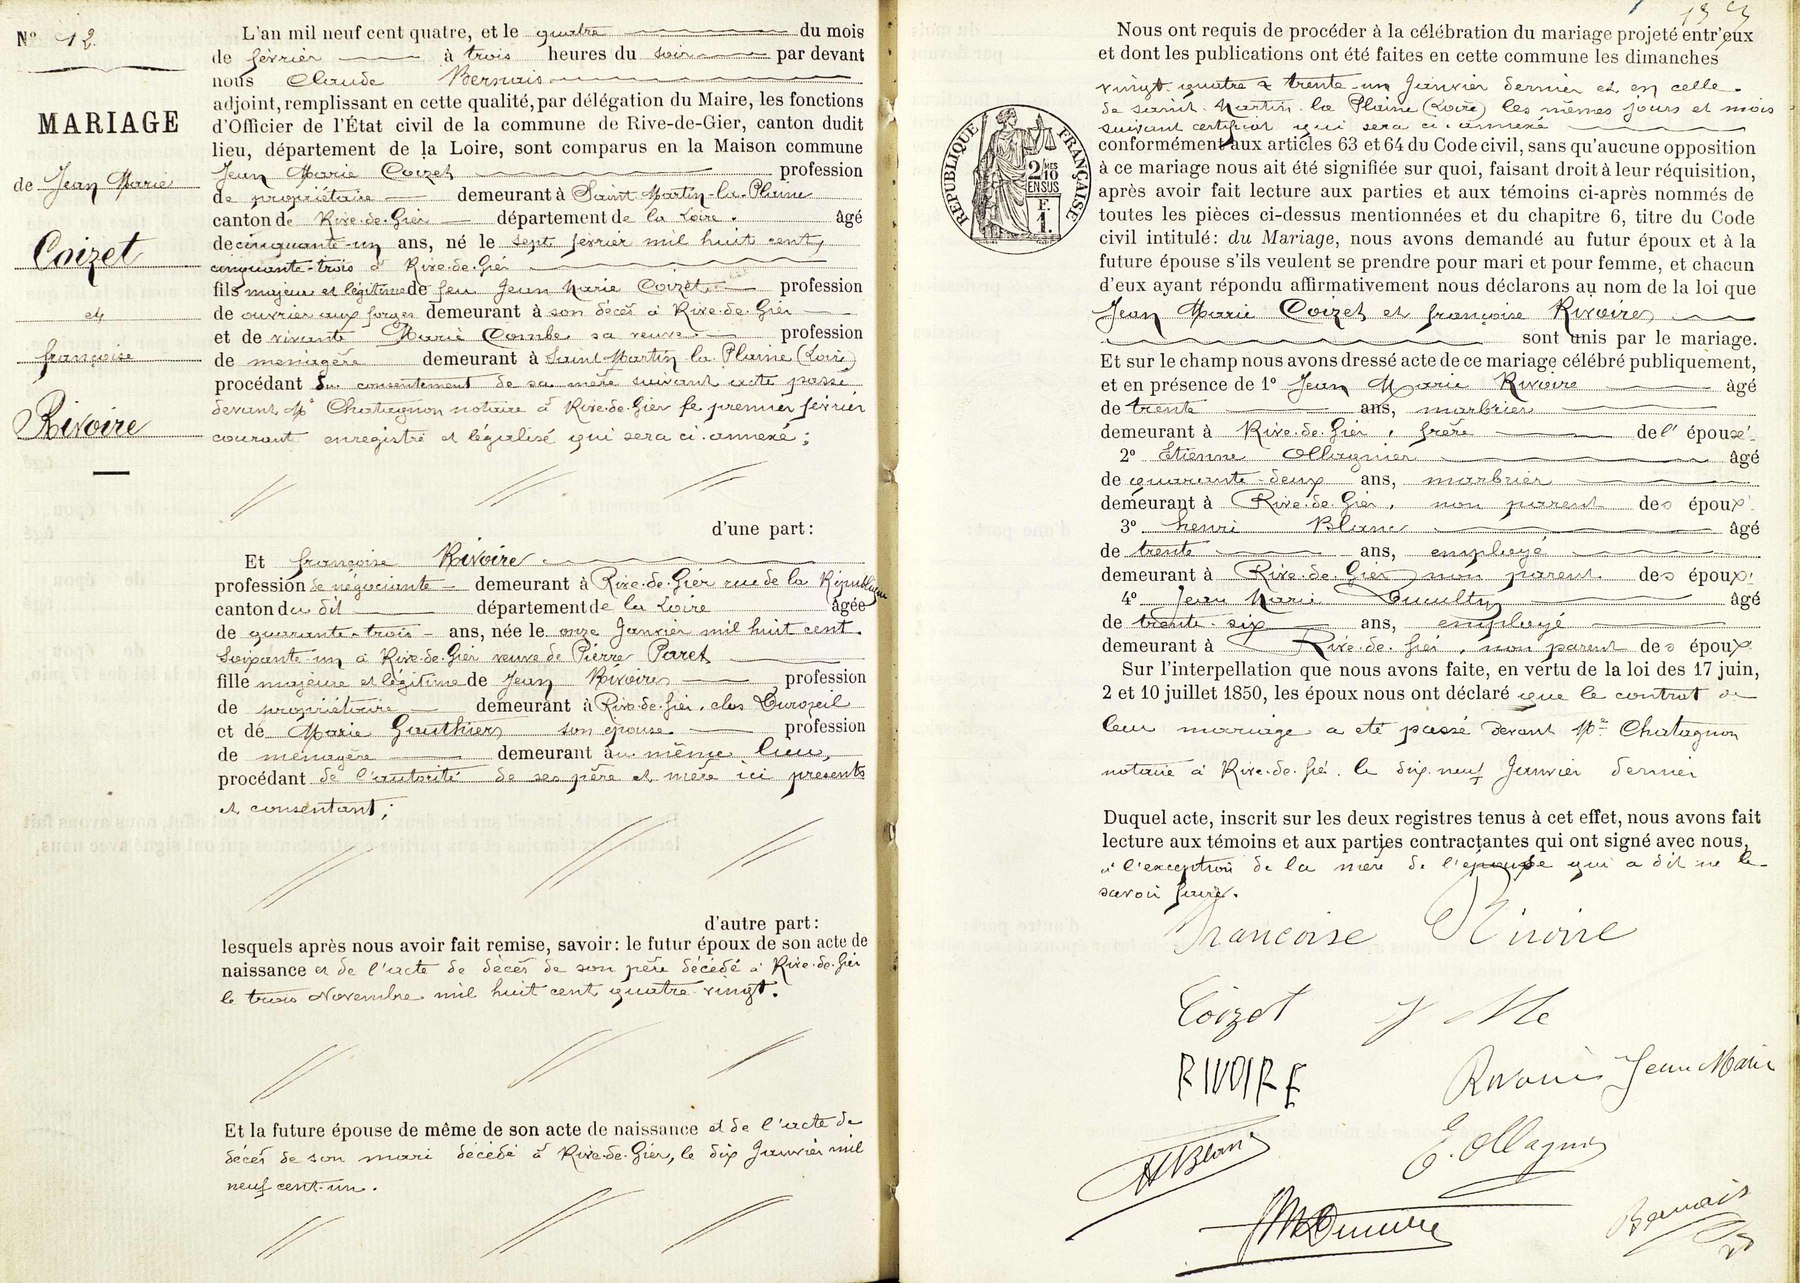 N° 12.
MARIAGE
de Jean Marie
Coizet
et
françoise
Rivoire
L'an mil neuf cent quatre, et le quatre du mois
de février à trois heures du soir par devant
nous Claude Bernais
adjoint, remplissant en cette qualité, par délégation du Maire, les fonctions
d'Officier de l'État civil de la commune de Rive-de-Gier, canton dudit
lieu, département de la Loire, sont comparus en la Maison commune
Jean Marie Coizet profession
de propriétaire demeurant à Saint Martin-la-Plaine
canton de Rive-de-Gier département de la Loire. âgé
de cinquante-un ans, né le sept février mil huit cent
cinquante-trois à Rive-de-Gier
fils majeur et légitime de feu Jean Marie Coizet profession
de ouvrier aux forges demeurant à son décès à Rive-de-Gier
et de vivante Marie Combe sa veuve profession
de ménagère demeurant à Saint Martin la Plaine (Loire)
procédant du consentement de sa mère suivant acte passé
devant Me Chatagnon notaire à Rive-de-Gier le premier février
courant enregistré et légalisé qui sera ci-annexé;
d'une part:
Et françoise Rivoire
profession de négociante demeurant à Rive-de-Gier rue de la République
canton du dit département de la Loire âgée
de quarante-trois ans, née le onze Janvier mil huit cent
soixante-un à Rive-de-Gier veuve de Pierre Paret
fille majeure et légitime de Jean Rivoire profession
de propriétaire demeurant à Rive-de-Gier, clos
et de Marie Gauthier son épouse profession
de ménagère demeurant au même lieu,
procédant de l'autorité de ses père et mère ici présents
et consentant;
d'autre part:
lesquels après nous avoir fait remise, savoir: le futur époux de son acte de
naissance et de l'acte de décès de son père décédé à Rive-de-Gier
le trois Novembre mil huit cent quatre-vingt.
Et la future épouse de même de son acte de naissance et de l'acte de
décès de son mari décédé à Rive-de-Gier, le dix Janvier mil
neuf cent-un.
Nous ont requis de procéder à la célébration du mariage projeté entr'eux
et dont les publications ont été faites en cette commune les dimanches
vingt-quatre & trente-un Janvier dernier et en celle
de saint Martin-la Plaine (Loire) les mêmes jours et mois
suivant certificat qui sera ci-annexé
RÉPUBLIQUE FRANÇAISE
2 MES
10
EN SUS
F.
1.
conformément aux articles 63 et 64 du Code civil, sans qu'aucune opposition
à ce mariage nous ait été signifiée sur quoi, faisant droit à leur réquisition,
après avoir fait lecture aux parties et aux témoins ci-après nommés de
toutes les pièces ci-dessus mentionnées et du chapitre 6, titre du Code
civil intitulé: du Mariage, nous avons demandé au futur époux et à la
future épouse s'ils veulent se prendre pour mari et pour femme, et chacun
d'eux ayant répondu affirmativement nous déclarons au nom de la loi que
Jean Marie Coizet et françoise Rivoire
sont unis par le mariage.
Et sur le champ nous avons dressé acte de ce mariage célébré publiquement,
et en présence de 1° Jean Marie Rivoire âgé
de trente ans, marbrier
demeurant à Rive-de-Gier, frère de l'épouse
2° Etienne Ollagnier âgé
de quarante-deux ans, marbrier
demeurant à Rive-de-Gier, non parent des époux
3° henri Blanc âgé
de trente ans, employé
demeurant à Rive-de-Gier, non parent des époux
4° Jean Marie âgé
de trente-six ans, employé
demeurant à Rive-de-Gier, non parent des époux
Sur l'interpellation que nous avons faite, en vertu de la loi des 17 juin,
2 et 10 juillet 1850, les époux nous ont déclaré que le contrat de
leur mariage a été passé devant Me Chatagnon
notaire à Rive-de-Gier, le dix neuf Janvier dernier
Duquel acte, inscrit sur les deux registres tenus à cet effet, nous avons fait
lecture aux témoins et aux parties contractantes qui ont signé avec nous,
à l'exception de la mère de l'épouse qui a dit ne le
savoir faire.
Francoise Rivoire
Coizet J Me
RIVOIRE Rivoire Jean Marie
HBlanc E. Ollagnier
Bernais